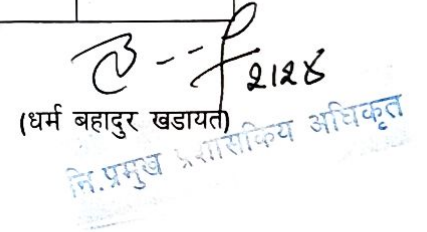 २।२४
(धर्म बहादुर खडायत)
नि.प्रमुख प्रशासकिय अधिकृत